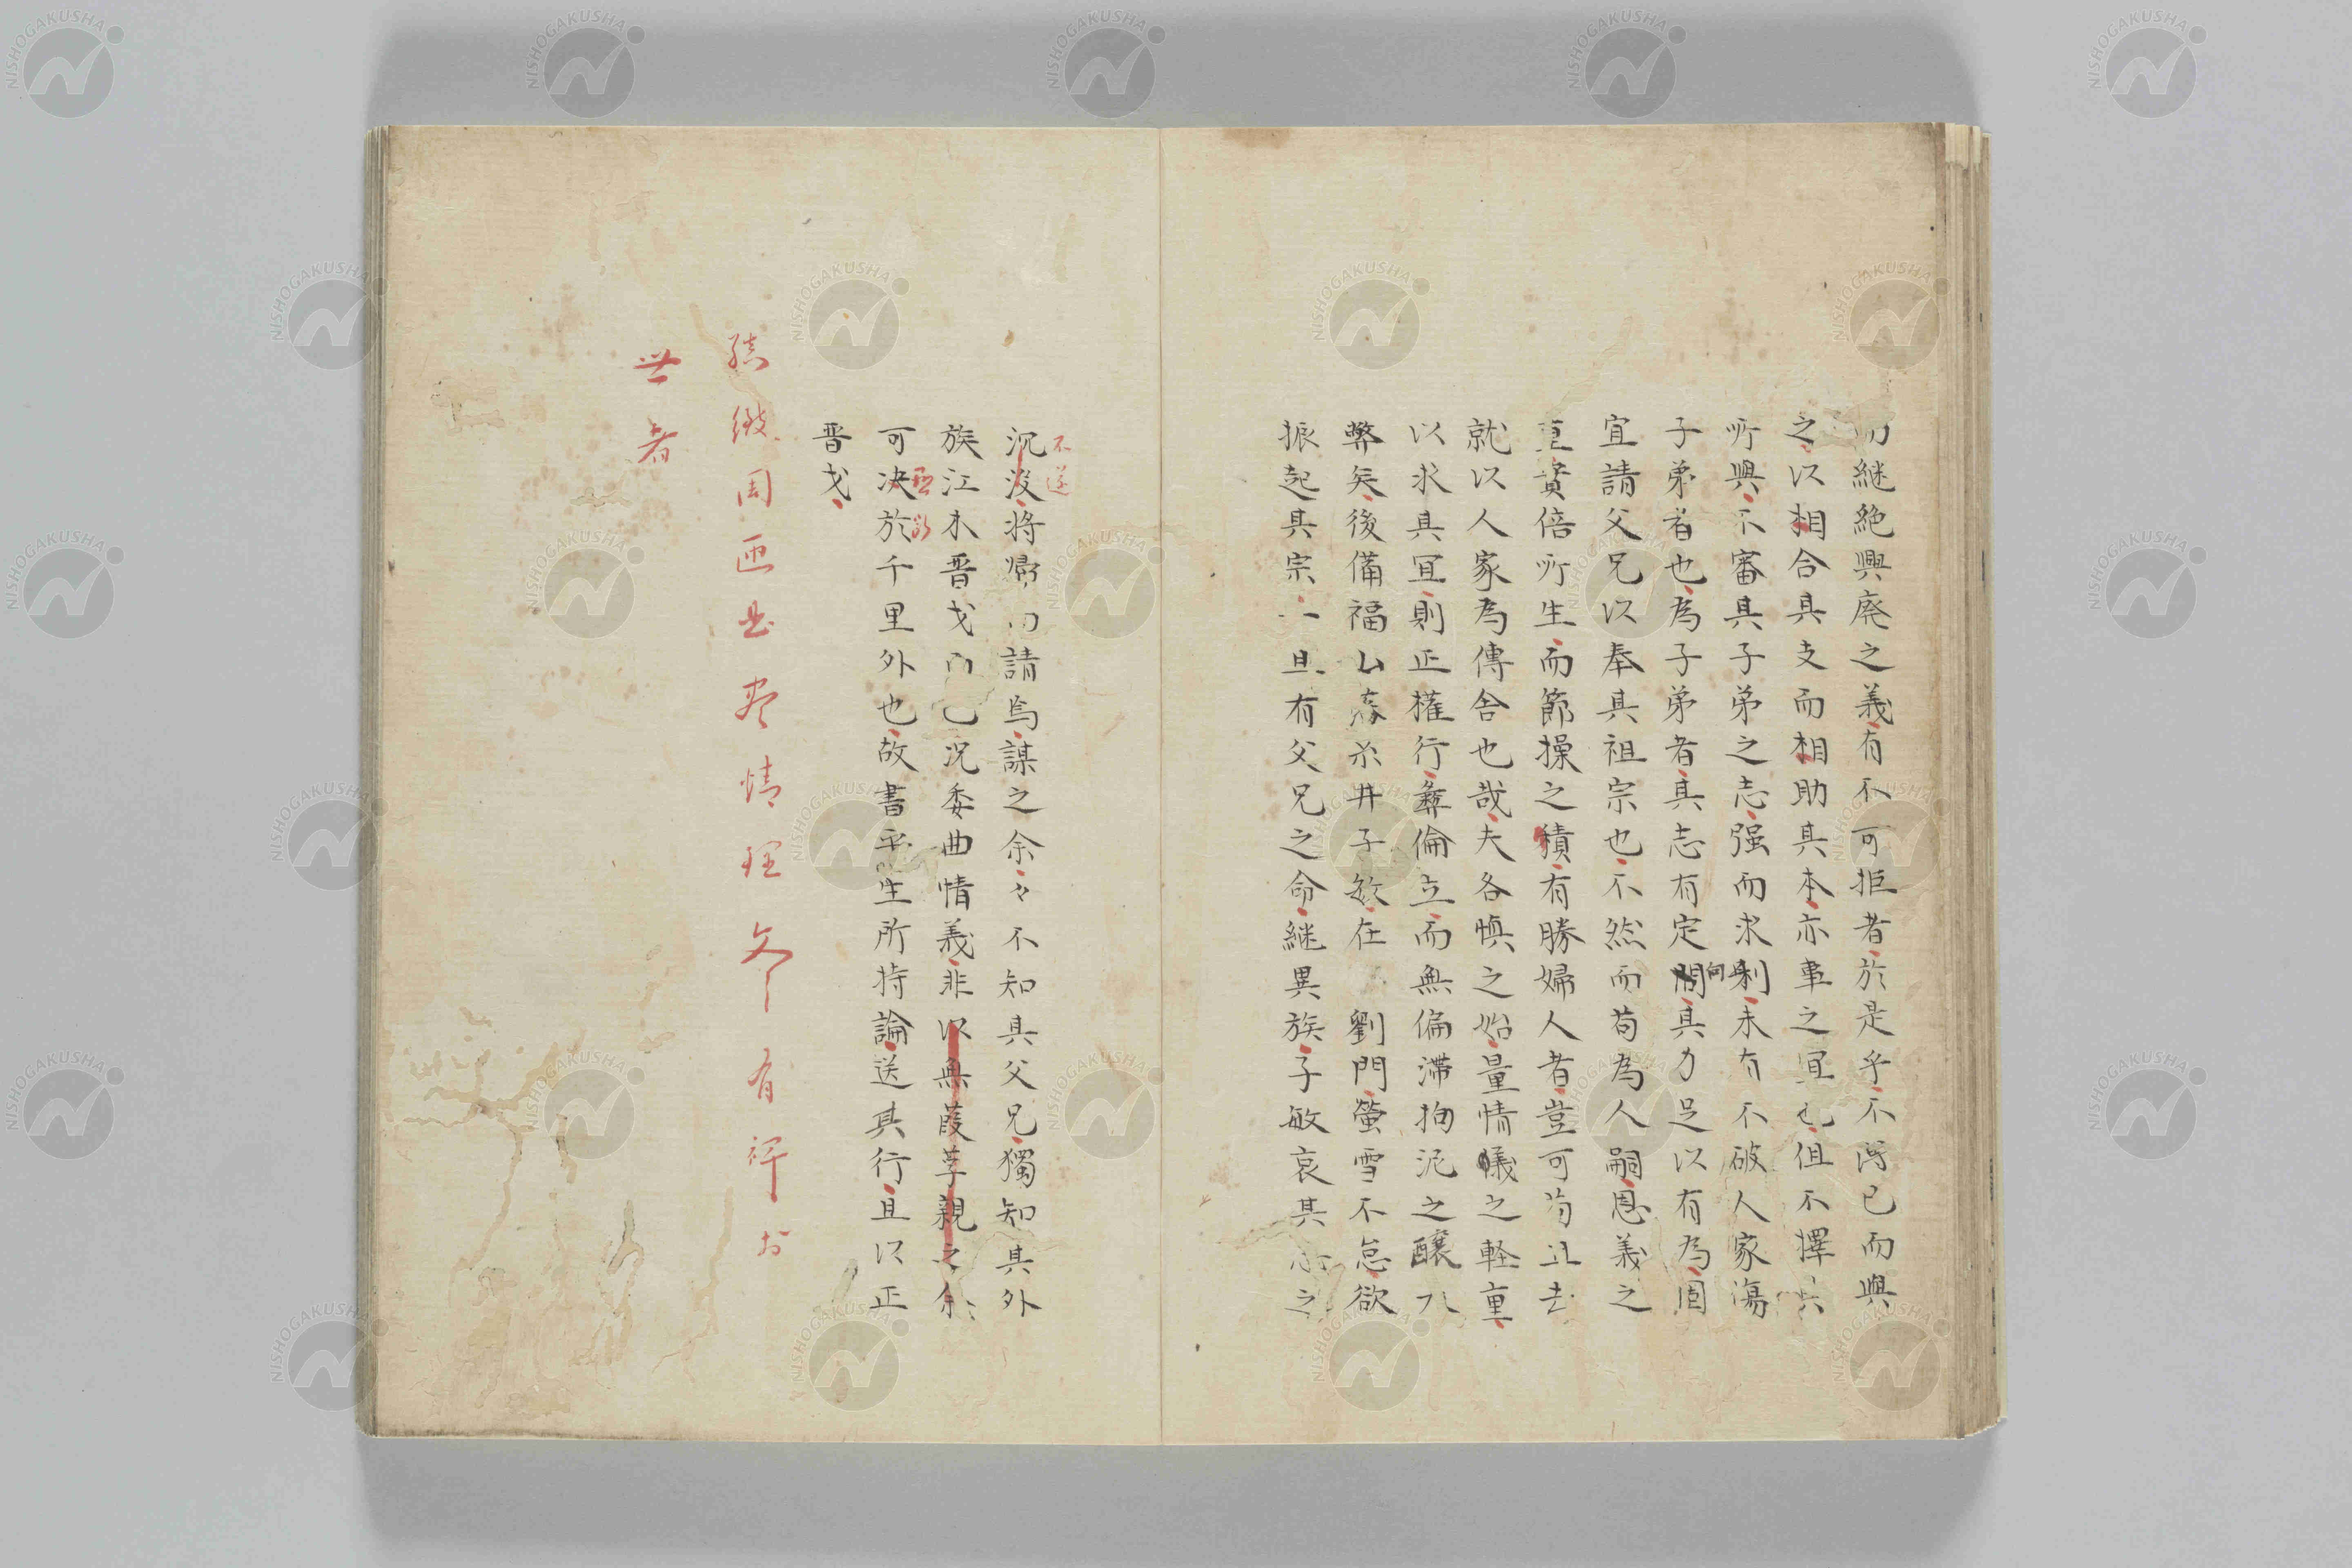 而継絶興廃之義有不可拒者於是乎不得已而興
之以相合其支而相助其本亦事之宜也但不擇其
所興不審其子弟之志强而求剰未有不破人家傷
子弟者也為子弟者其志有定向間其力足以有為固
宜請父兄以奉其祖宗也不然而苟為人嗣恩義之
重實倍所生而節操之積有勝婦人者豈可苟且去
就以人家為傳舎也哉夫各慎之始量情義之軽重
以求其宜則正權行彝倫立而無偏滞拘泥之醸
弊矣後備福山森糸井子敏在 劉門螢雪不怠欲
振起其宗一旦有父兄之命継異族子敏哀其志之
沉没将帰而請焉謀之余々不知其父兄獨知其外
不遂
族江木晋戈而已況委曲情義非以無葭莩親之余
可決於千里外也故書平生所持論送其行且以正
晋戈
周匝 情理 有裨於
世者
NISHOGAKUSHA